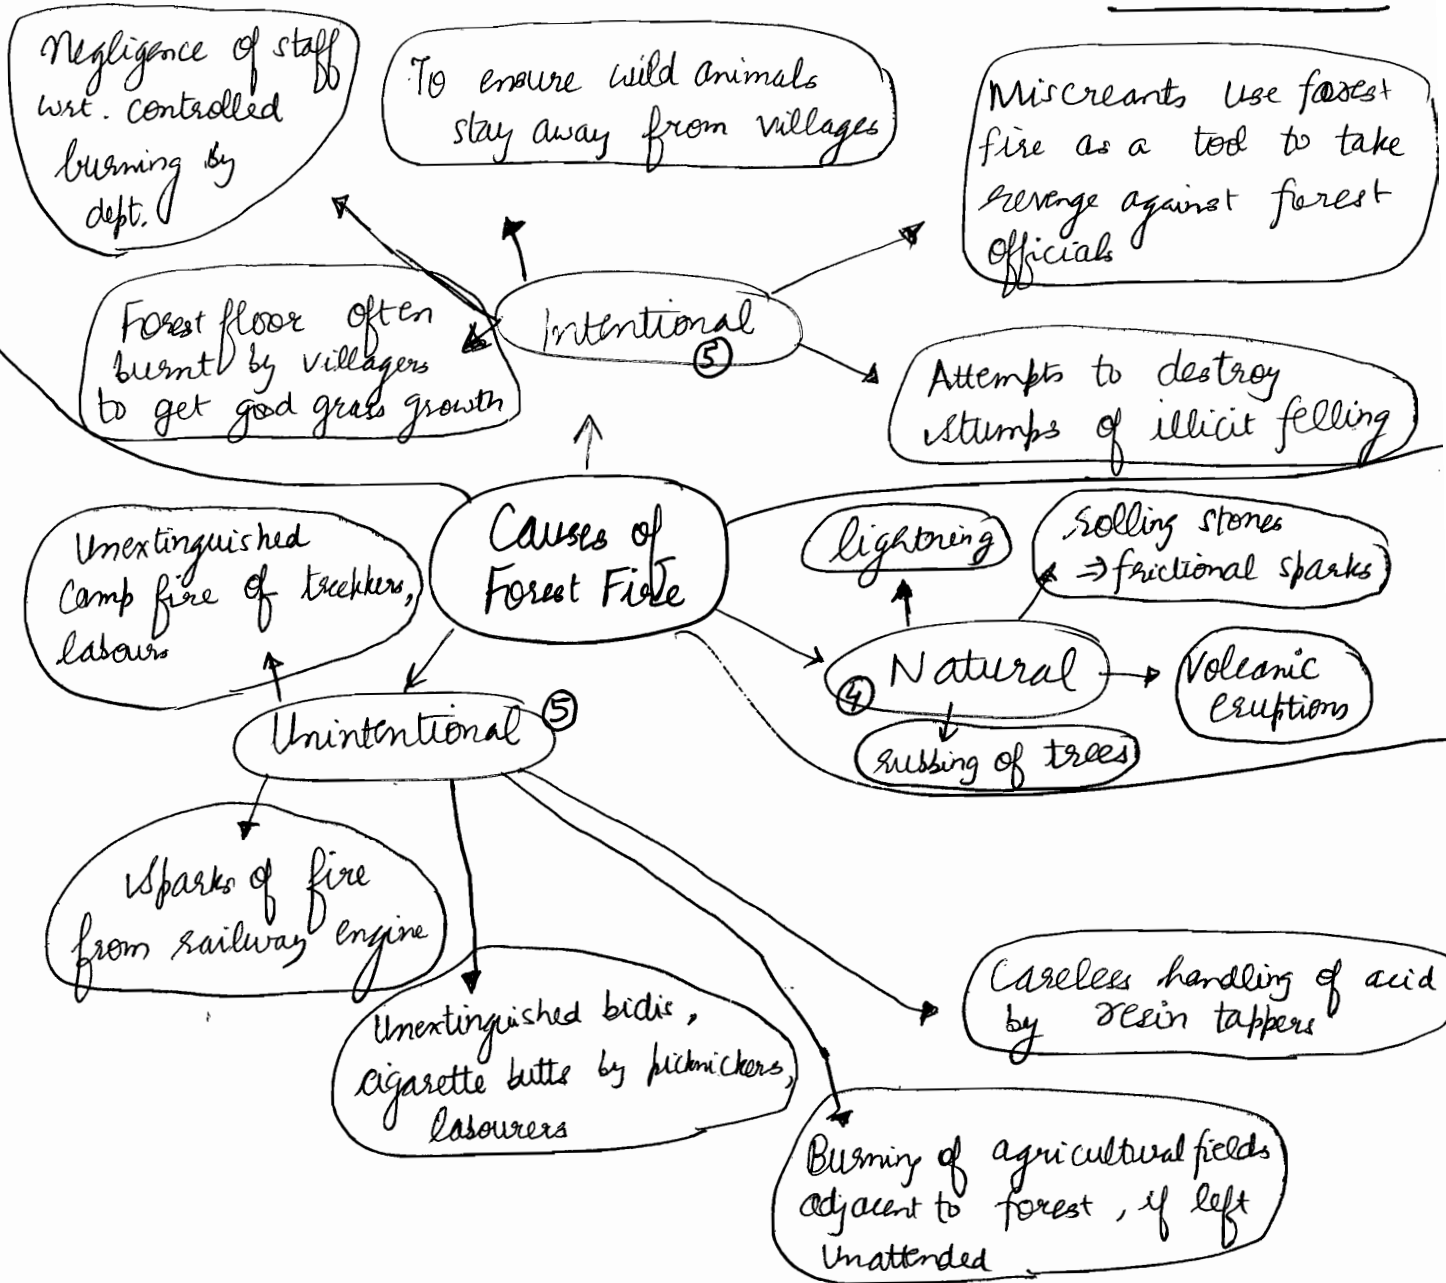 Negligence of staff
wrt. controlled
burning by
dept.
To ensure wild animals
stay away from villages
Miscreants use forest
fire as a tool to take
revenge against forest
officials
Forest floor often
burnt by villagers
to get good grass growth
Intentional
5
Attempts to destroy
stumps of illicit felling
Causes of
Forest Fire
Unextinguished
Camp fire of trekkers,
labours
lightning
rolling stones
⇒ frictional sparks
Natural
4
Volcanic
eruptions
rubbing of trees
Unintentional
5
Sparks of fire
from railway engine
Unextinguished bidis,
cigarette butts by picknickers,
labourers
Careless handling of acid
by resin tappers
Burning of agricultural fields
adjacent to forest, if left
unattended